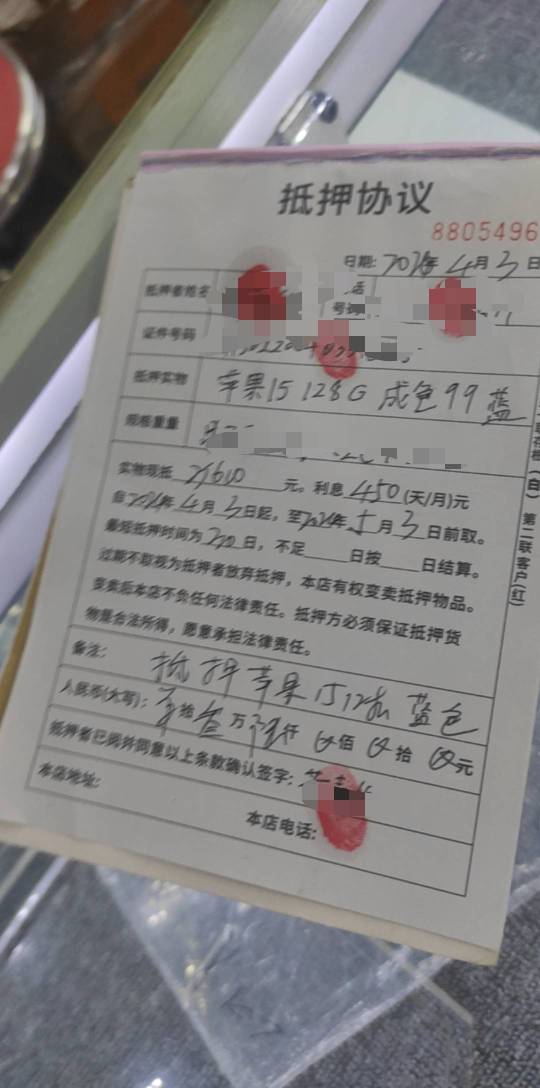 抵押协议
8805496
日期: 年4月3日
抵押者姓名
证件号码
抵押实物 苹果15 128G 成色99 蓝
规格重量
实物现抵 元。利息450(天/月)元
自2024年4月3日起,至2024年5月3日前取。
最短抵押时间为 日,不足 日按 日结算。
过期不取视为抵押者放弃抵押,本店有权变卖抵押物品。
变卖后本店不负任何法律责任。抵押方必须保证抵押货
物是合法所得,愿意承担法律责任。
备注: 抵押苹果15 128 蓝色
人民币(大写): 拾 万 仟 佰 拾 元
抵押者已阅并同意以上条款确认签字:
本店地址:
本店电话:
(白) 第二联客户(红)